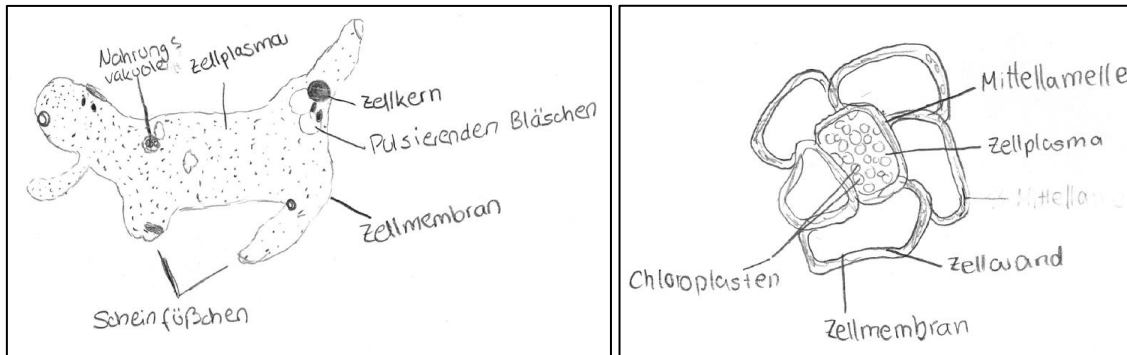 Nahrungs
vakuole
Zellplasma
Zellkern
Pulsierenden Bläschen
Zellmembran
Scheinfüßchen
Mittellamelle
Zellplasma
Mittellame
Chloroplasten
Zellwand
Zellmembran